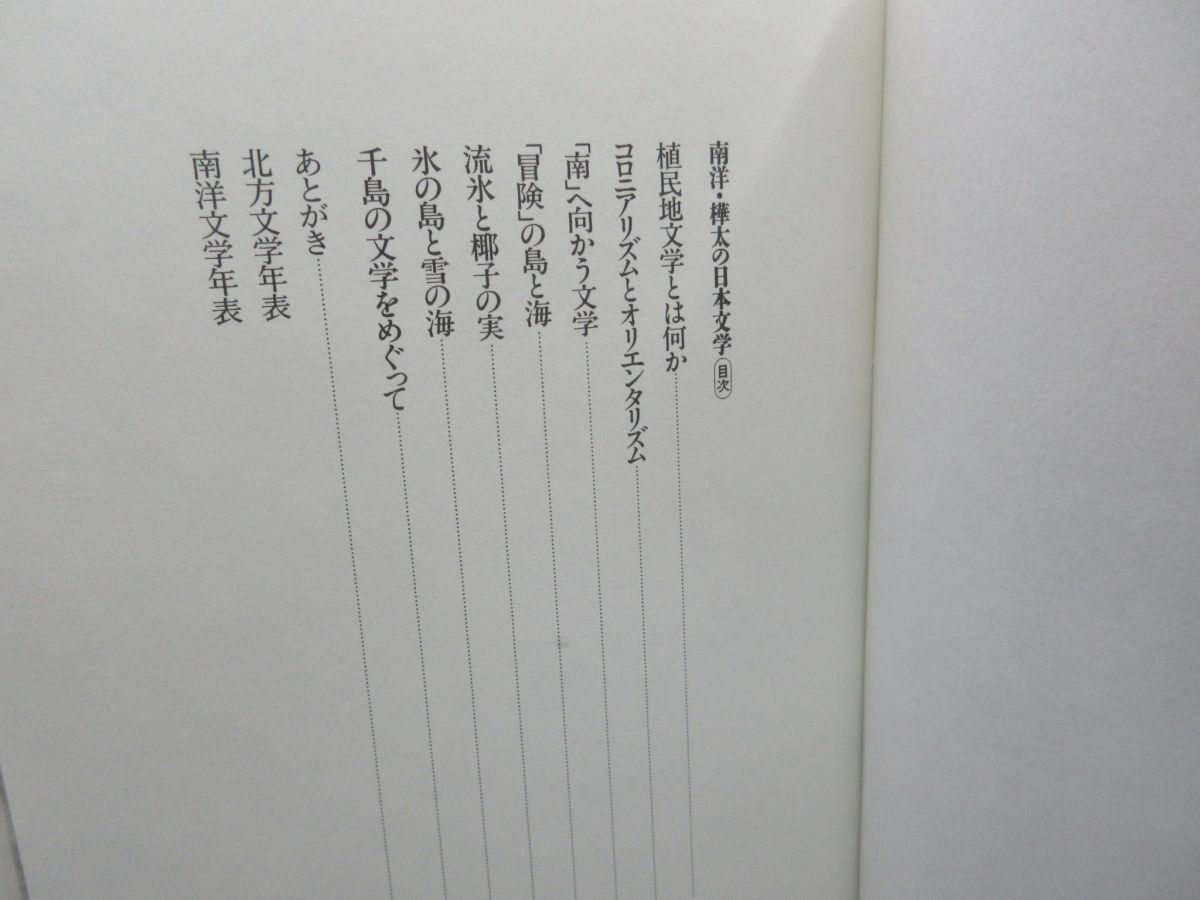 南洋・樺太の日本文学 目次
植民地文学とは何か
コロニアリズムとオリエンタリズム
「南」へ向かう文学
「冒険」の島と海
流氷と椰子の実
氷の島と雪の海
千島の文学をめぐって
あとがき
北方文学年表
南洋文学年表